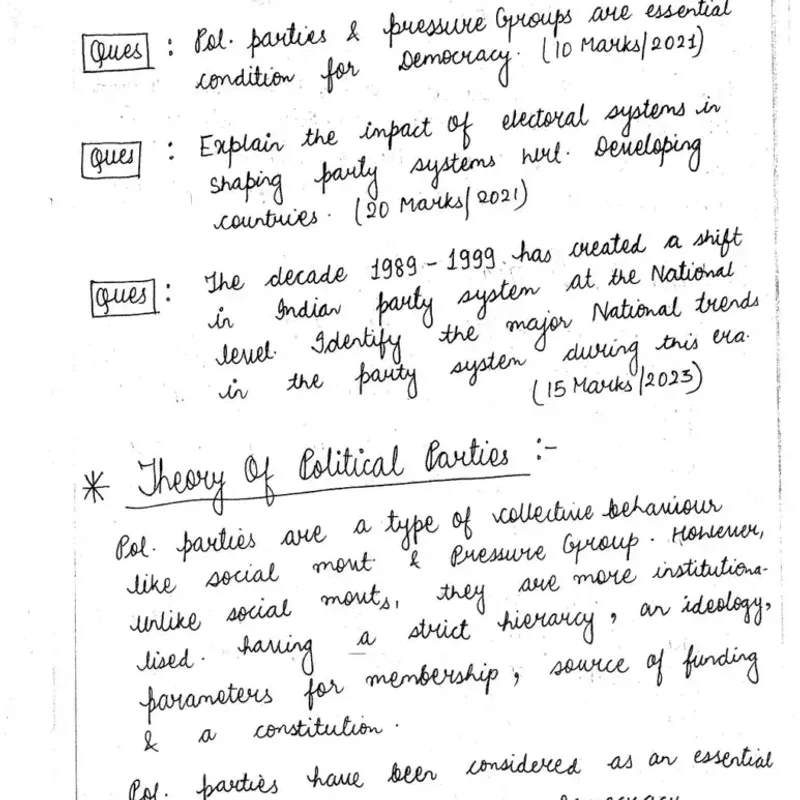 Ques : Pol. parties & pressure Groups are essential
condition for Democracy. (10 Marks/2021)
Ques : Explain the impact of electoral systems in
shaping party systems w.r.t. Developing
countries. (20 Marks/2021)
Ques : The decade 1989-1999 has created a shift
in Indian party system at the National
level. Identify the major National trends
in the party system during this era.
(15 Marks/2023)
* Theory Of Political Parties :-
Pol. parties are a type of collective behaviour
like social movt & Pressure Group. However,
unlike social movts, they are more institutiona-
lised. having a strict hierarcy, an ideology,
parameters for membership, source of funding
& a constitution.
Pol. parties have been considered as an essential
democracy